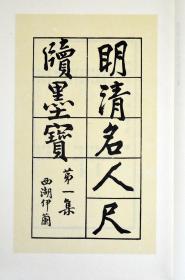 明清名人尺
牘墨寶
第一集
西湖伊蘭